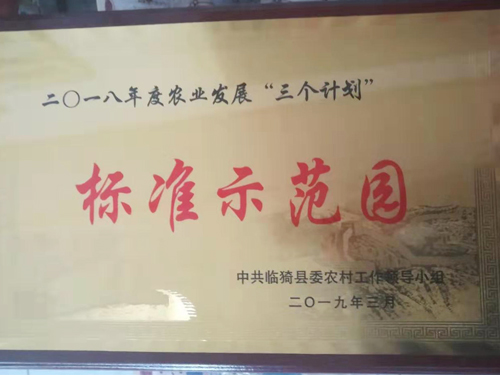 二〇一八年度农业发展“三个计划”
标准示范园
中共临猗县委农村工作领导小组
二〇一九年三月